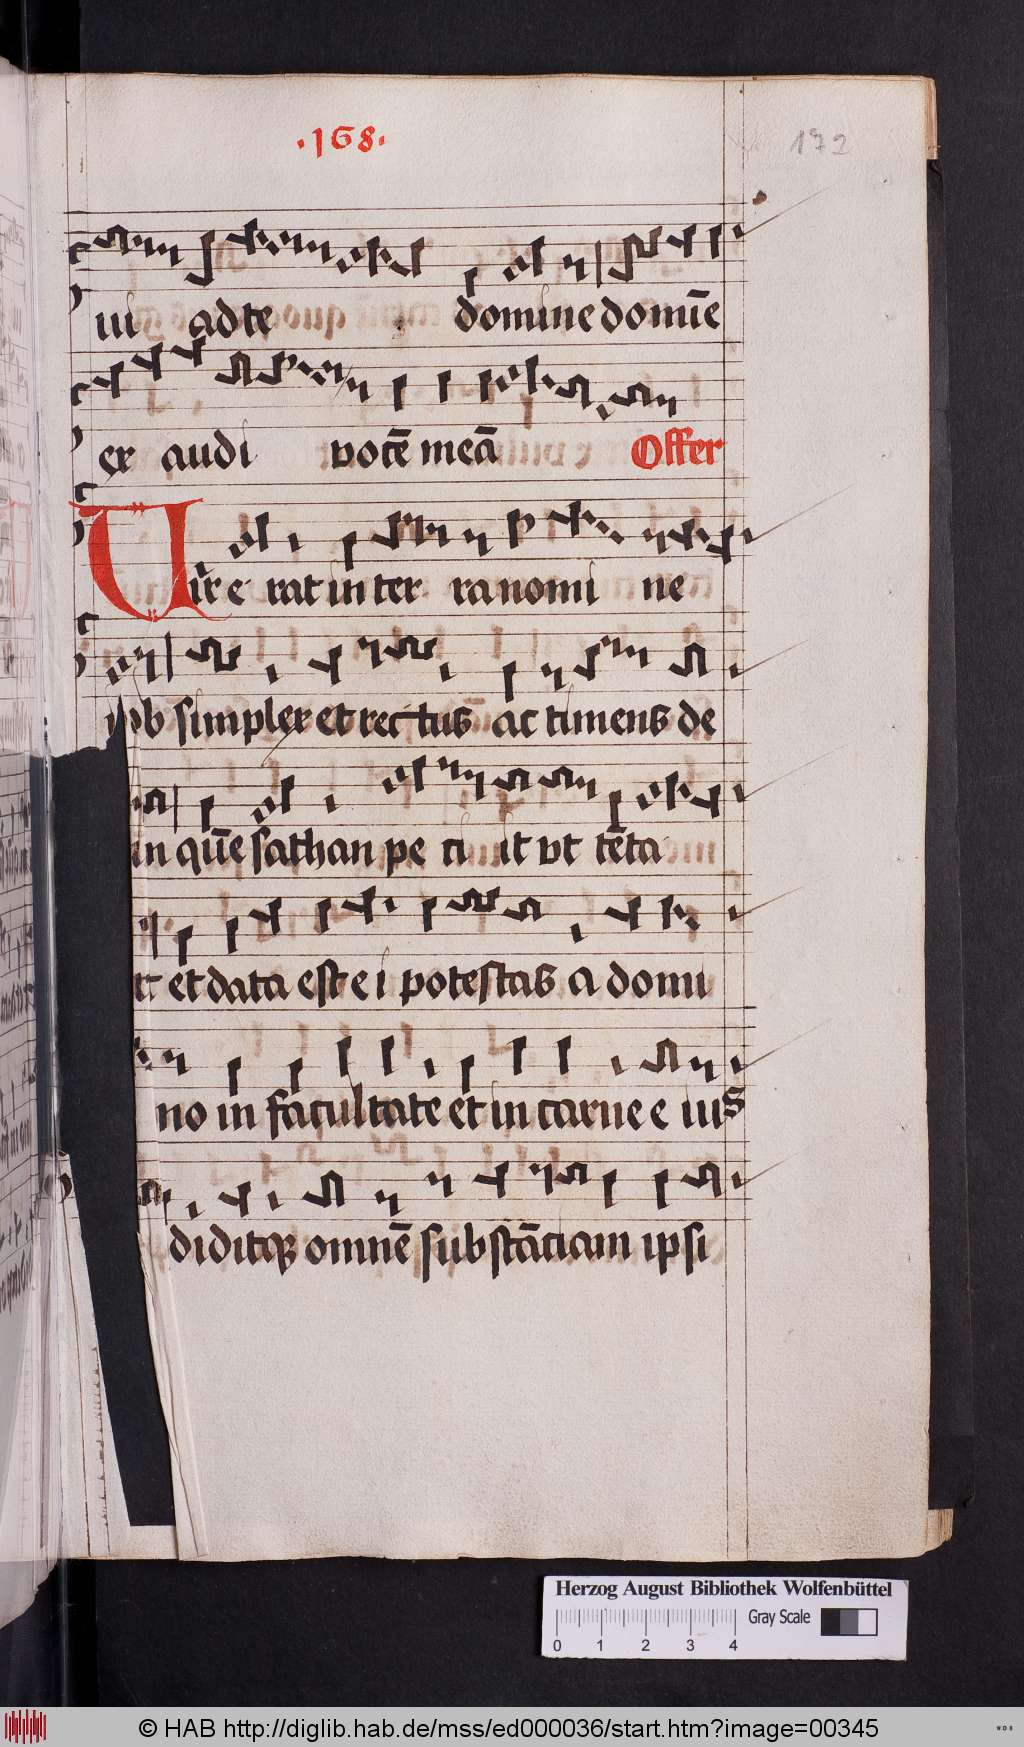 ·168·
172
ui ad te domine domīe
ex audi vocē meā Offer
Vir e rat in ter ra nomi ne
iob simplex et rectus ac timens de
in quē sathan pe ti it vt tēta
et data est ei potestas a domi
no in facultate et in carne e ius
diditqȝ omnē substātiam ipsi
Herzog August Bibliothek Wolfenbüttel
Gray Scale
0 1 2 3 4
© HAB http://diglib.hab.de/mss/ed000036/start.htm?image=00345